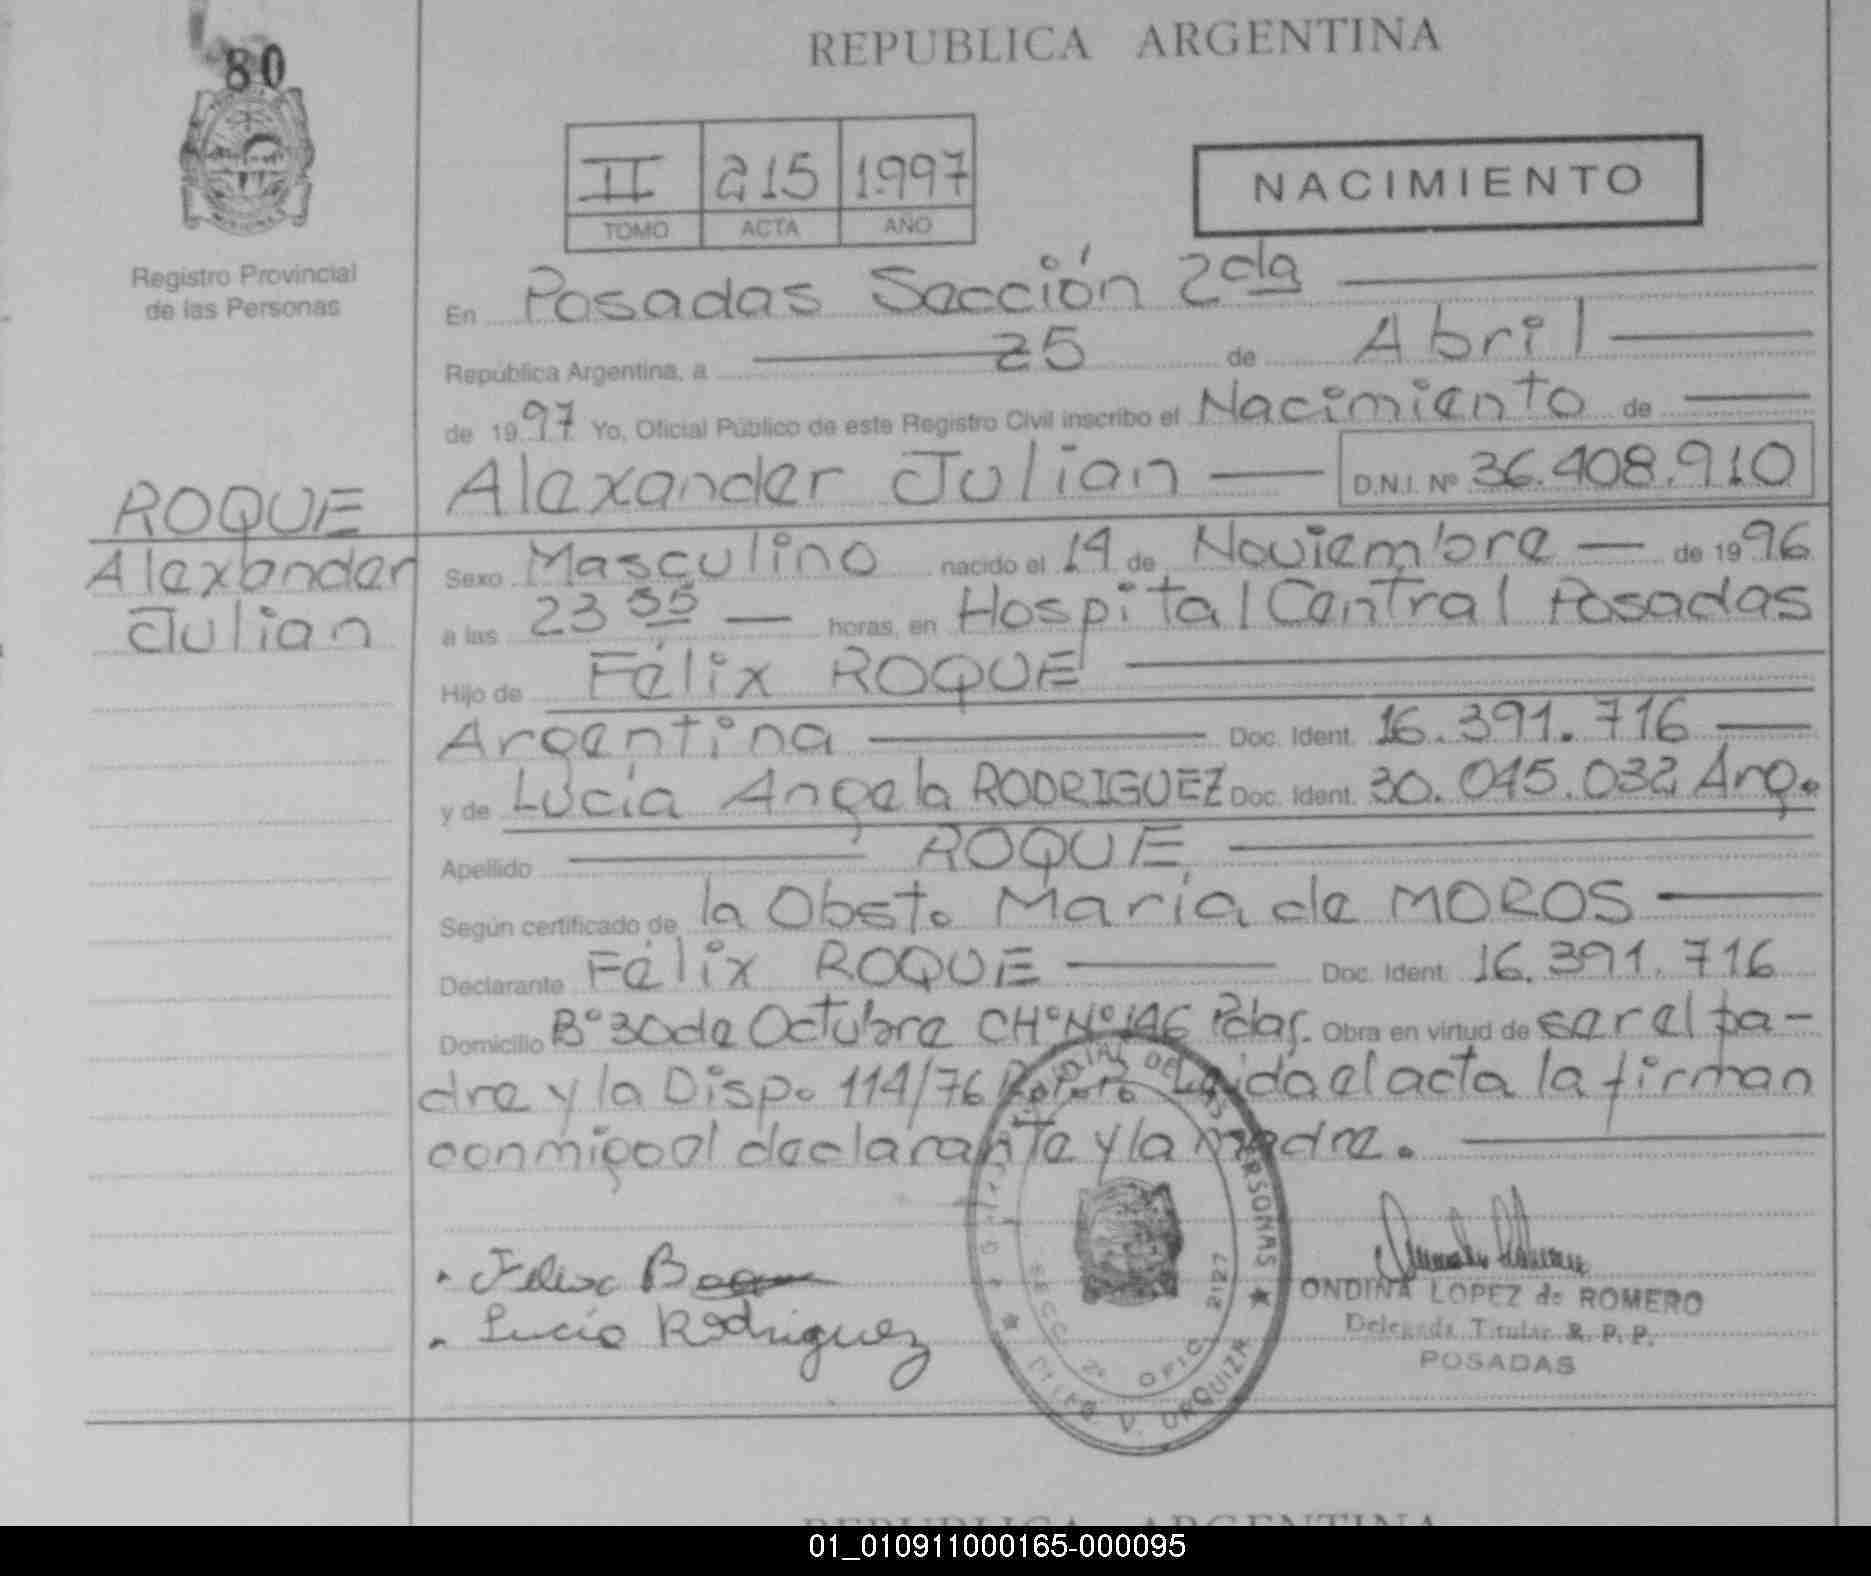 80
REPUBLICA ARGENTINA
II 215 1.997
TOMO ACTA AÑO
NACIMIENTO
Registro Provincial
de las Personas
En Posadas Sección 2da
República Argentina, a 25 de Abril
de 1997 Yo, Oficial Público de este Registro Civil inscribo el Nacimiento de
Alexander Julian D.N.I. Nº 36.408.910
ROQUE
Alexander
Julian
Sexo Masculino nacido el 14 de Noviembre de 1996
a las 23 55 horas, en Hospital Central Posadas
Hijo de Félix ROQUE
Argentina Doc. Ident. 16.391.716
y de Lucía Angela RODRIGUEZ Doc. Ident. 30.045.032 Arg.
Apellido ROQUE
Según certificado de la Obst. María de MOROS
Declarante Félix ROQUE Doc. Ident. 16.391.716
Domicilio Bº 30 de Octubre CHº Nº 146 Pdas. Obra en virtud de ser el pa-
dre y la Disp. 114/76 Leida el acta la firman
conmigo el declarante y la madre.
Felix
Lucia Rodriguez
DE LAS PERSONAS
SECC. 2ª OFIC. 2127
V. URQUIZA
ONDINA LOPEZ de ROMERO
Delegada Titular R. P. P.
POSADAS
REPUBLICA ARGENTINA
01_010911000165-000095